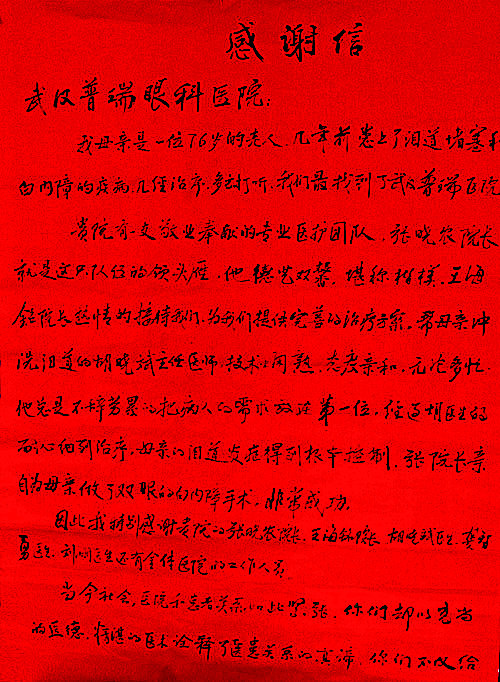 感谢信
武汉普瑞眼科医院:
我母亲是一位76岁的老人,几年前患上了泪道堵塞和
白内障的疾病,几经治疗,多方打听,我们最找到了武汉普瑞医院
贵院有一支敬业奉献的专业医护团队,张晓农院长
就是这只队伍的领头雁,他德艺双馨,堪称楷模,王海
院长热情的接待我们,为我们提供完善的治疗方案,帮母亲冲
洗泪道的胡晓斌主任医师,技术娴熟,态度亲和,无论多忙,
他总是不辞劳累的把病人的需求放在第一位,经过胡医生的
到治疗,母亲的泪道炎症得到根本控制,张院长亲
自为母亲做了双眼的白内障手术,非常成功。
因此我特别感谢贵院的张晓农院长,王海林院长,胡晓斌医生,龚
勇医生,刘川医生还有全体医院的工作人员
当今社会,医院和患者关系如此紧张,你们却以高尚
的医德,精湛的医术诠释了医患关系的真谛,你们不仅给